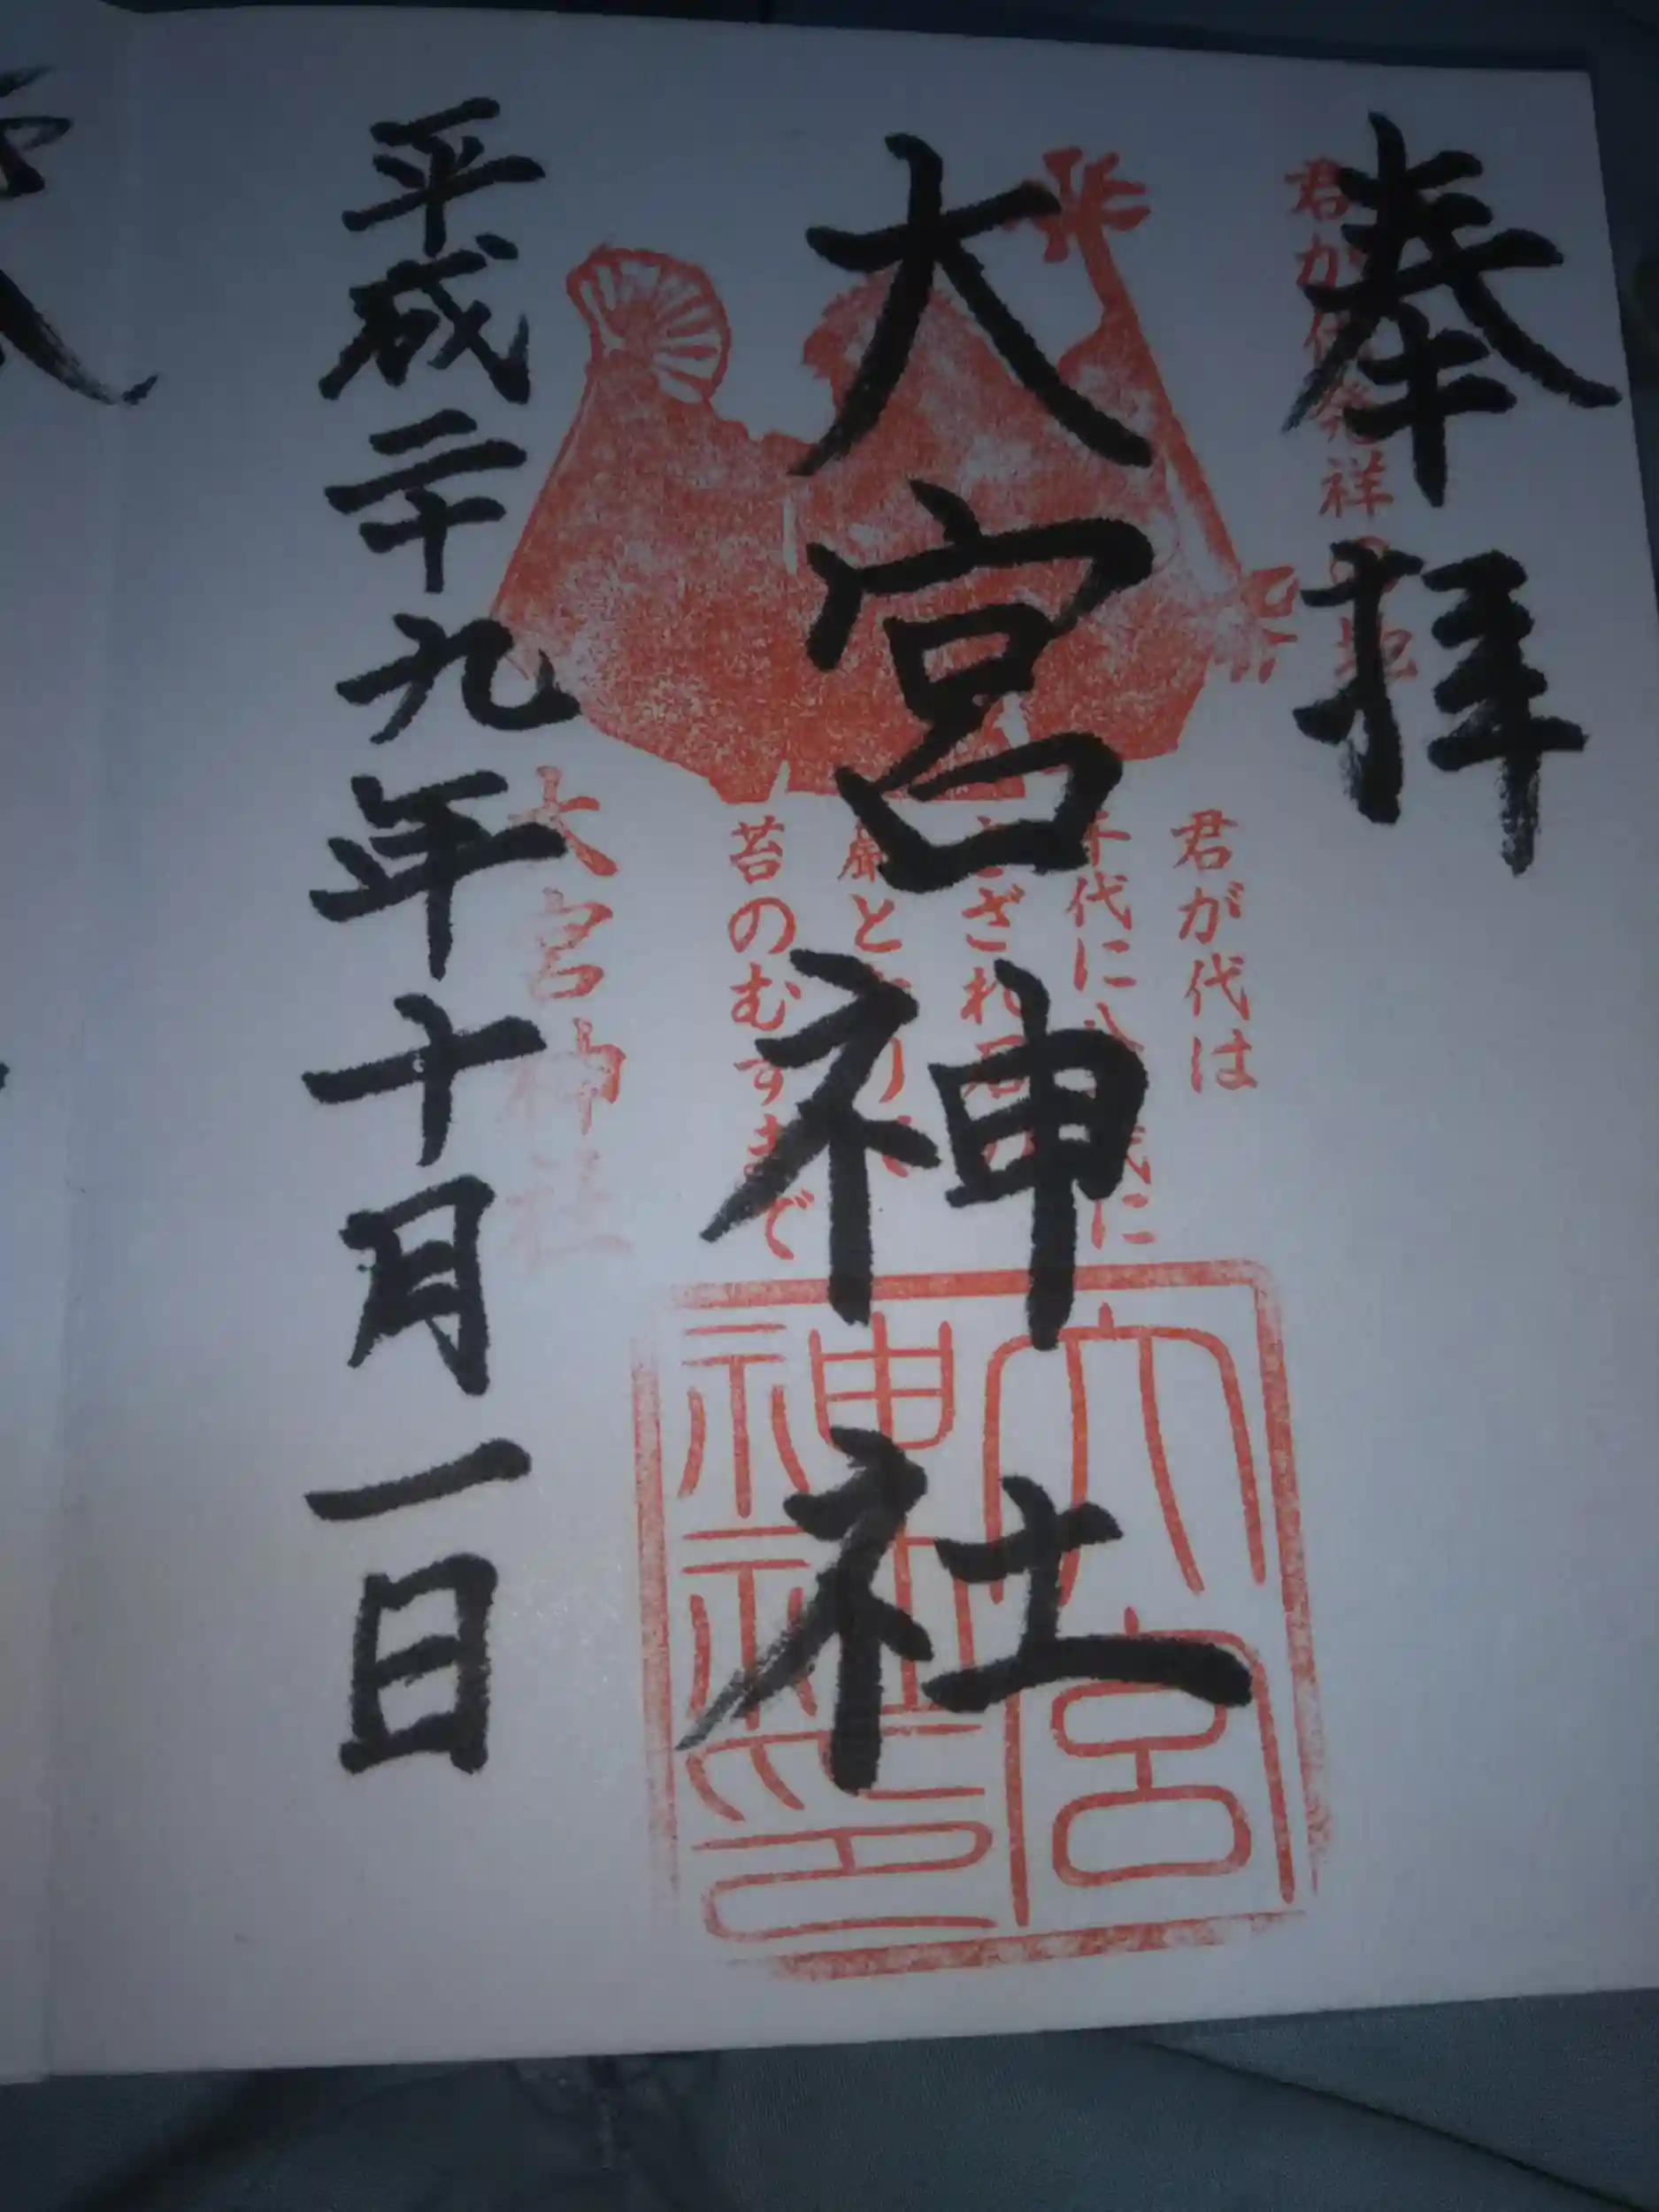 奉拝
君が代発祥の地
大宮神社
君が代は
千代に八千代に
さざれ石の
巌となりて
苔のむすまで
大宮神社
大宮神社印
平成二十九年十月一日